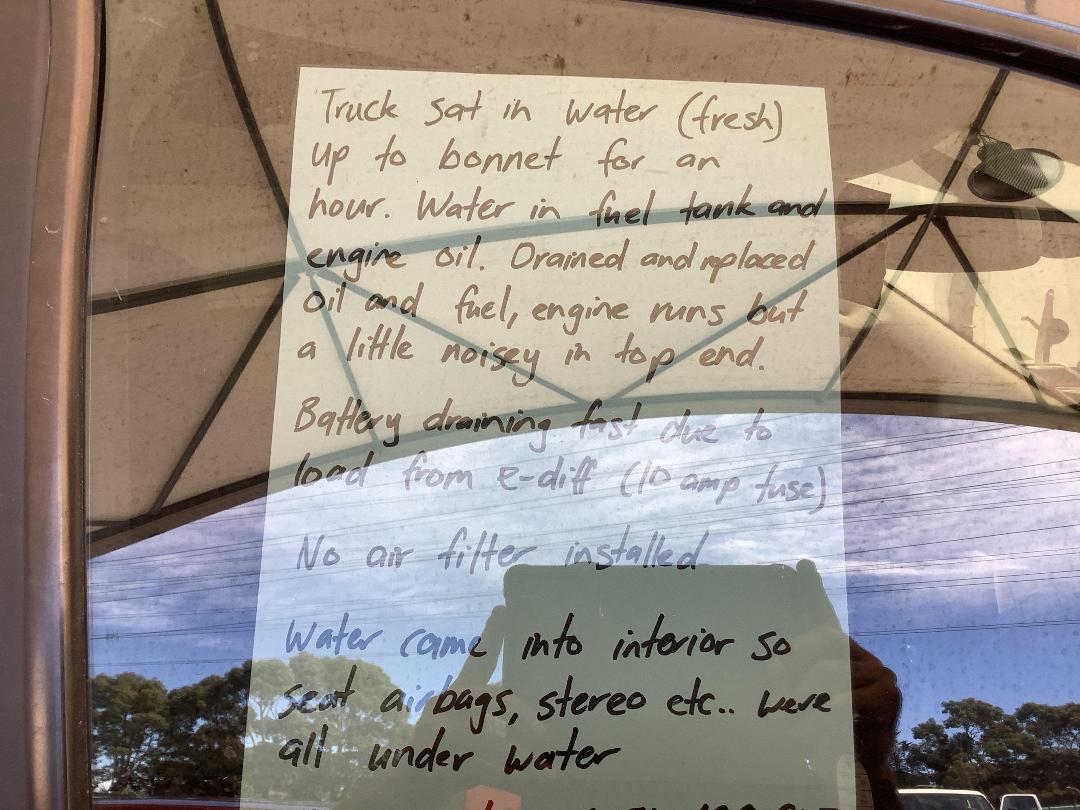 Truck sat in water (fresh)
up to bonnet for an
hour. Water in fuel tank and
engine oil. Drained and replaced
oil and fuel, engine runs but
a little noisey in top end.
Battery draining fast due to
load from e-diff (10 amp fuse)
No air filter installed
Water came into interior so
seat airbags, stereo etc.. were
all under water